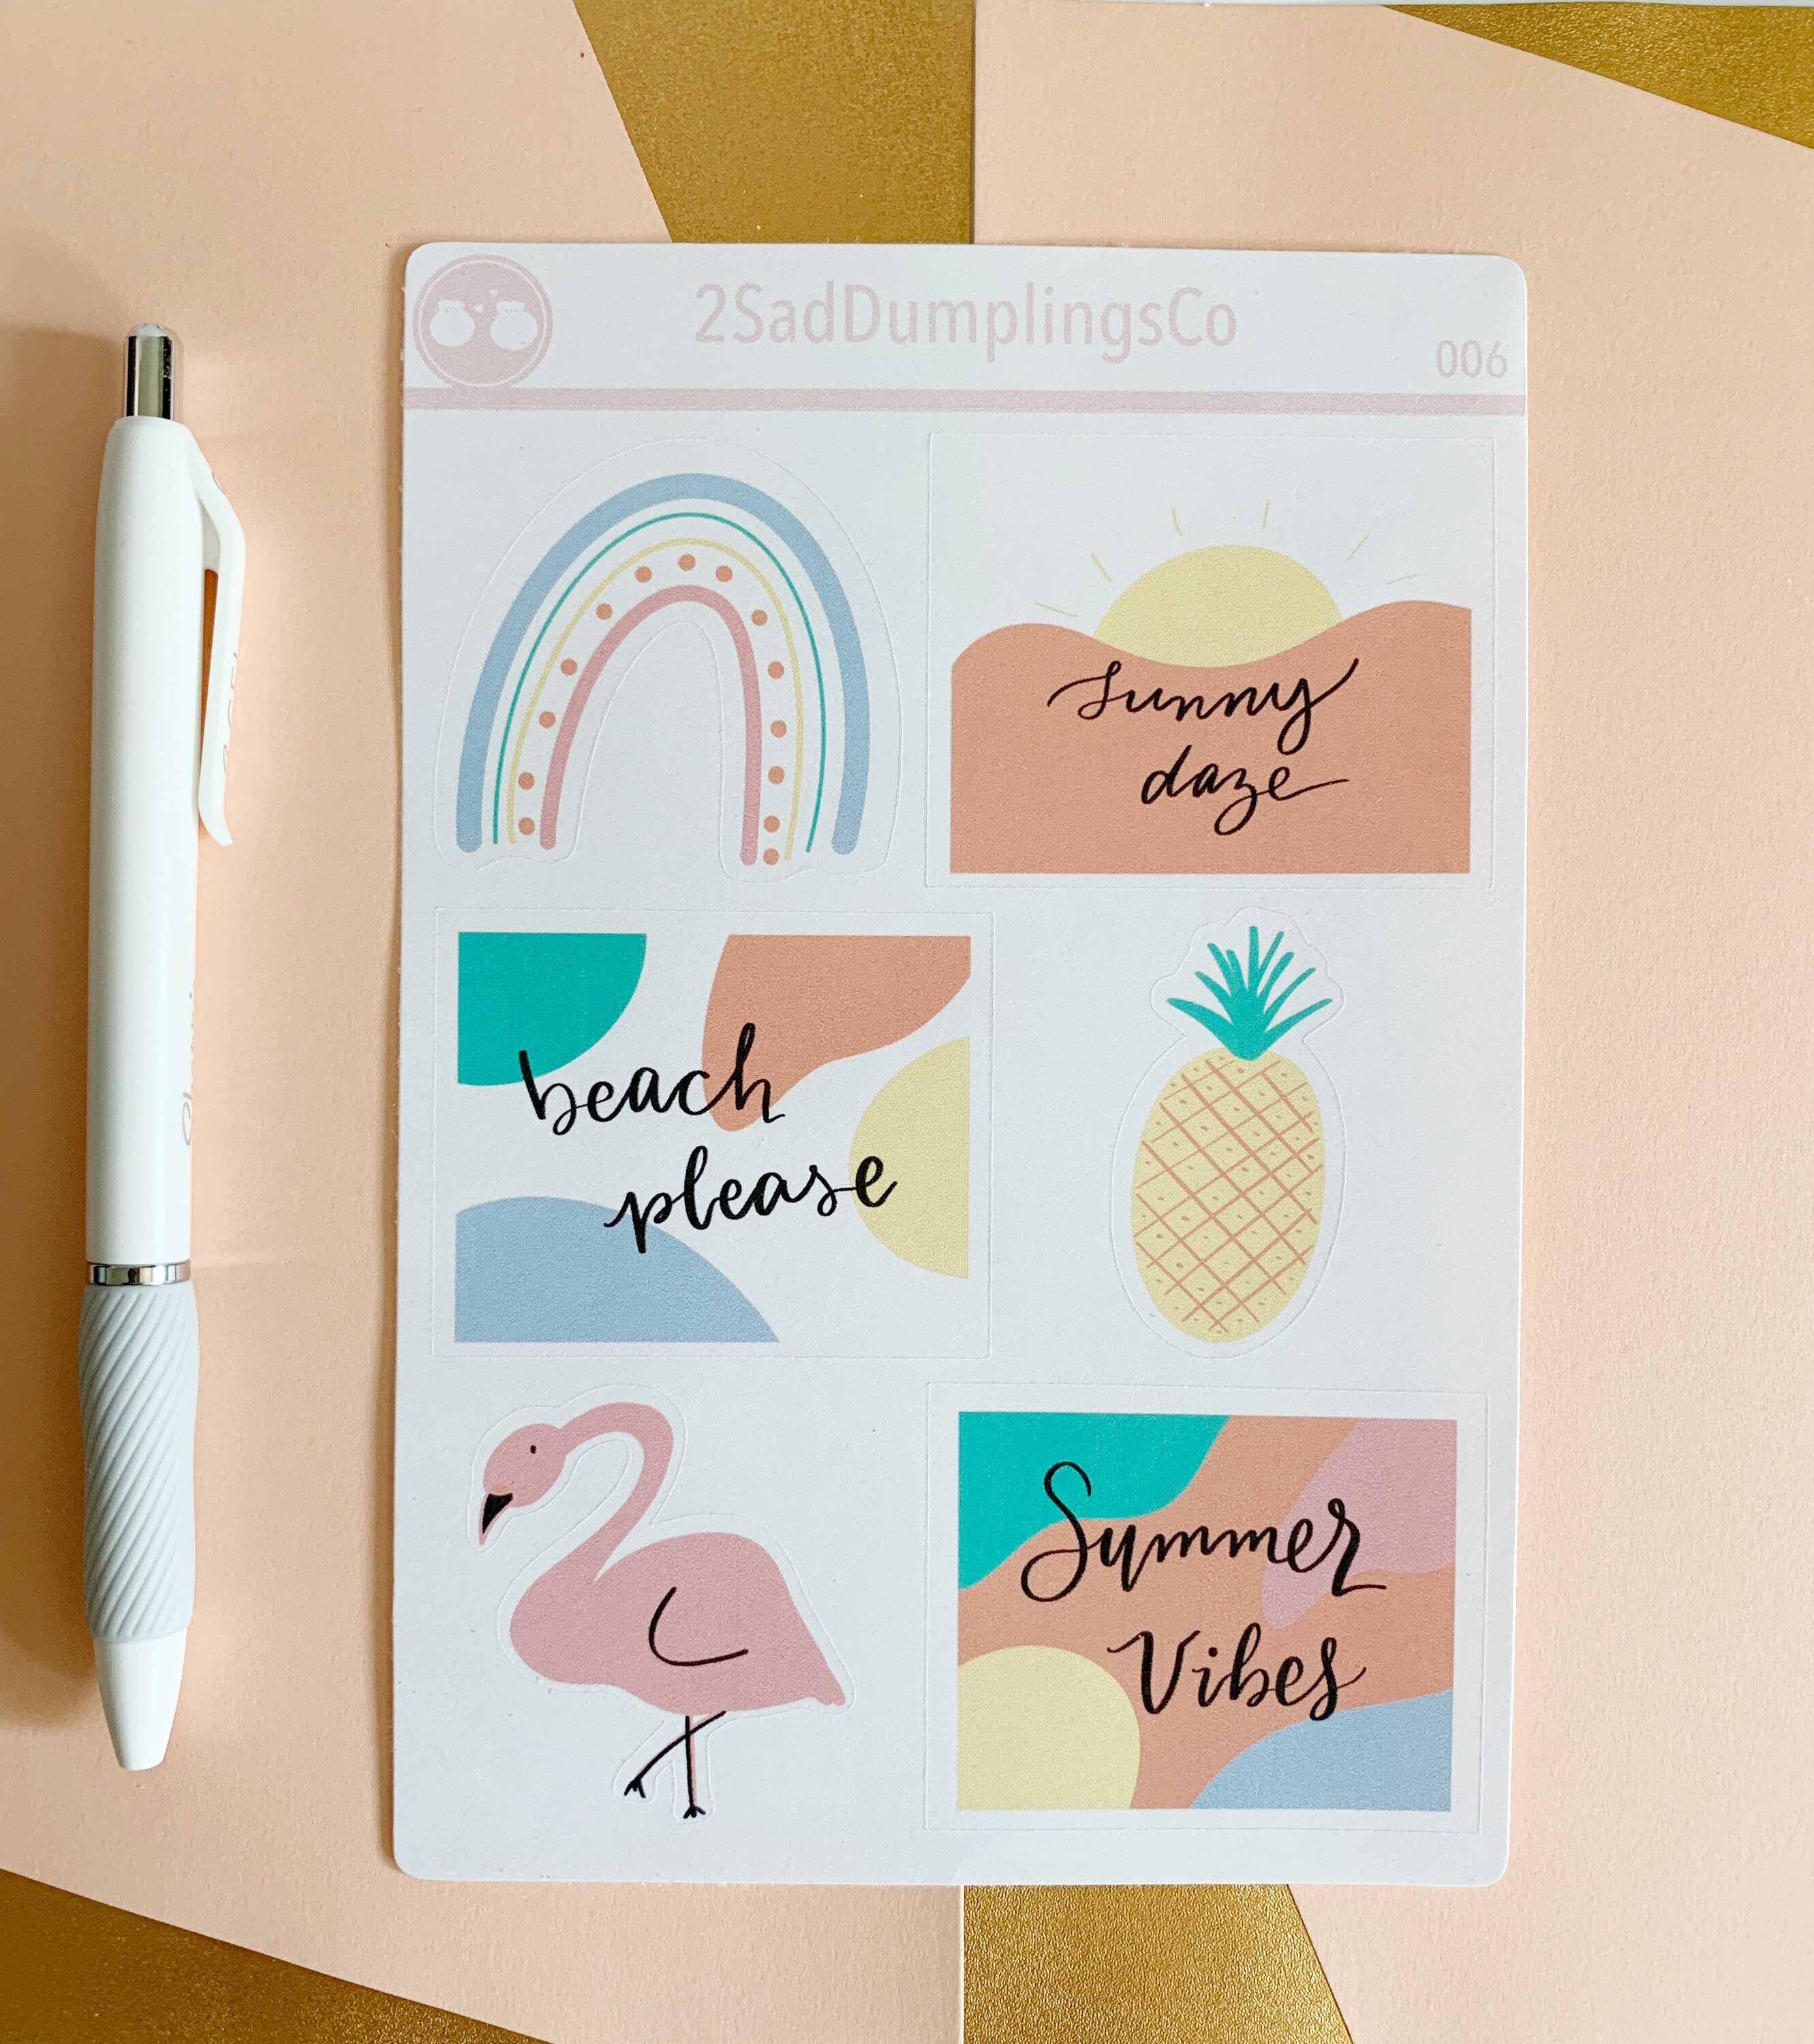 2SadDumplingsCo
006
sunny
daze
beach
please
Summer
Vibes